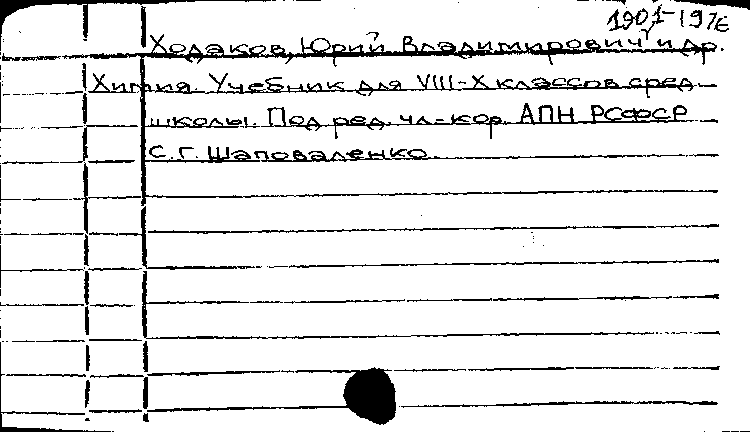 1901-1976
Ходаков, Юрий Владимирович и др.
Химия. Учебник для VIII-X классов сред.
школы. Под ред. чл-кор. АПН РСФСР
С.Г. Шаповаленко.